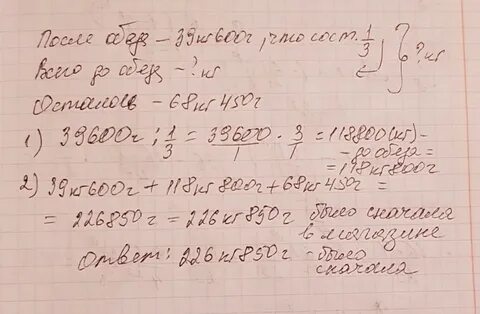 После обеда – 39кг600г, что сост. 1/3 } ? кг
Всего до обеда – ? кг
Осталось – 68кг450г
1) 39600г : 1/3 = 39600/1 · 3/1 = 118800(кг) –
– до обеда =
= 118кг800г
2) 39кг600г + 118кг800г + 68кг450г =
= 226850г = 226кг850г было сначала
в магазине
Ответ: 226кг850г – было
сначала